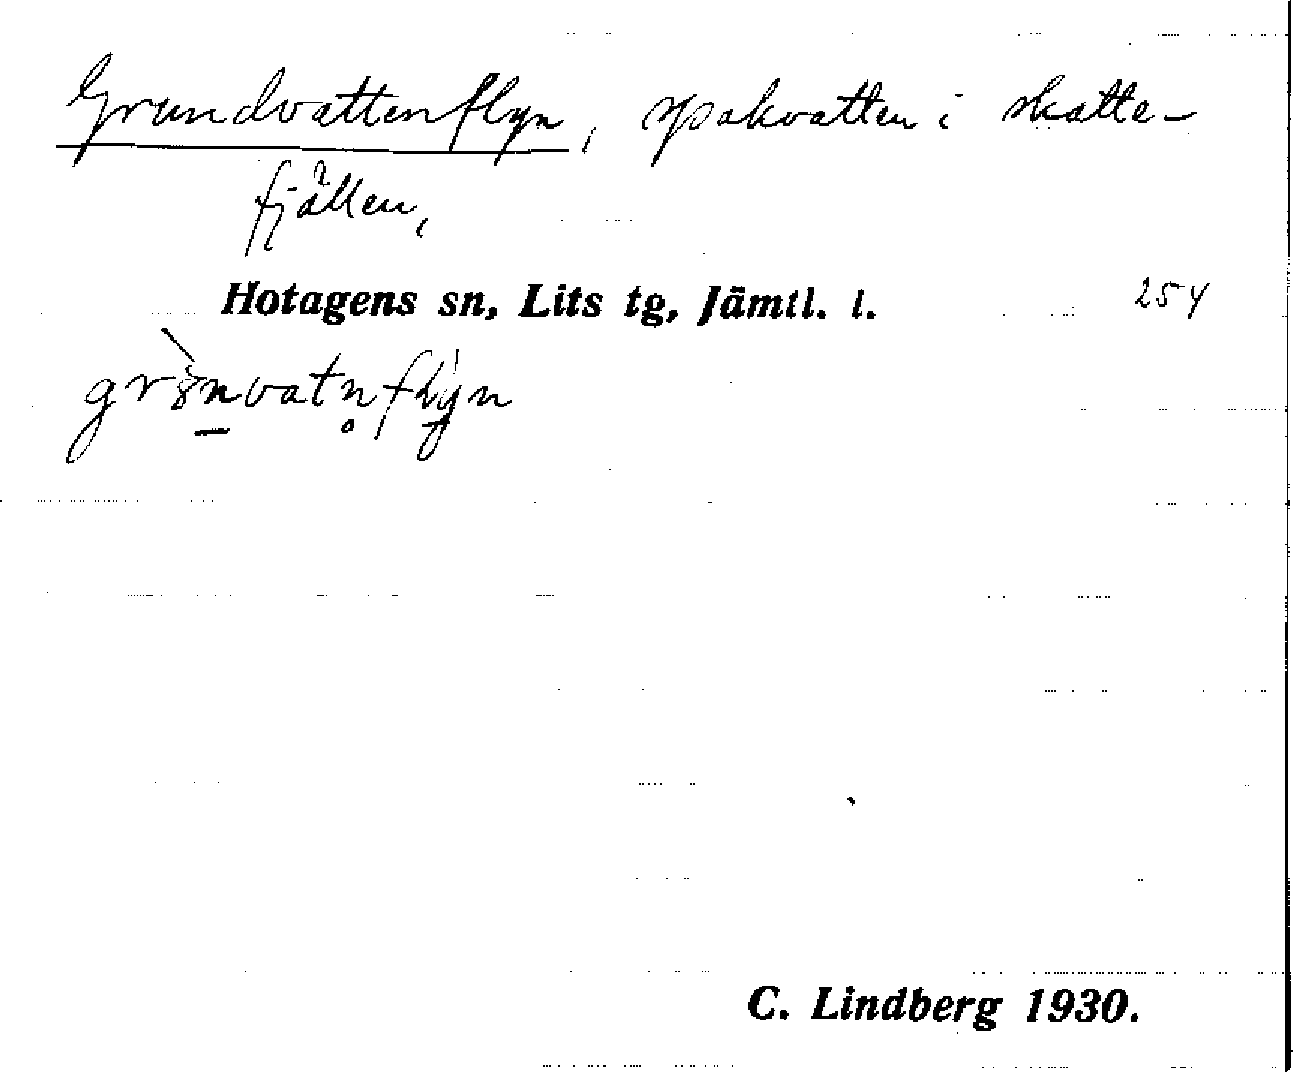 Grundvattenflyn, spakvatten i skatte-
fjällen,
Hotagens sn, Lits tg, Jämtl. l. 254
C. Lindberg 1930.